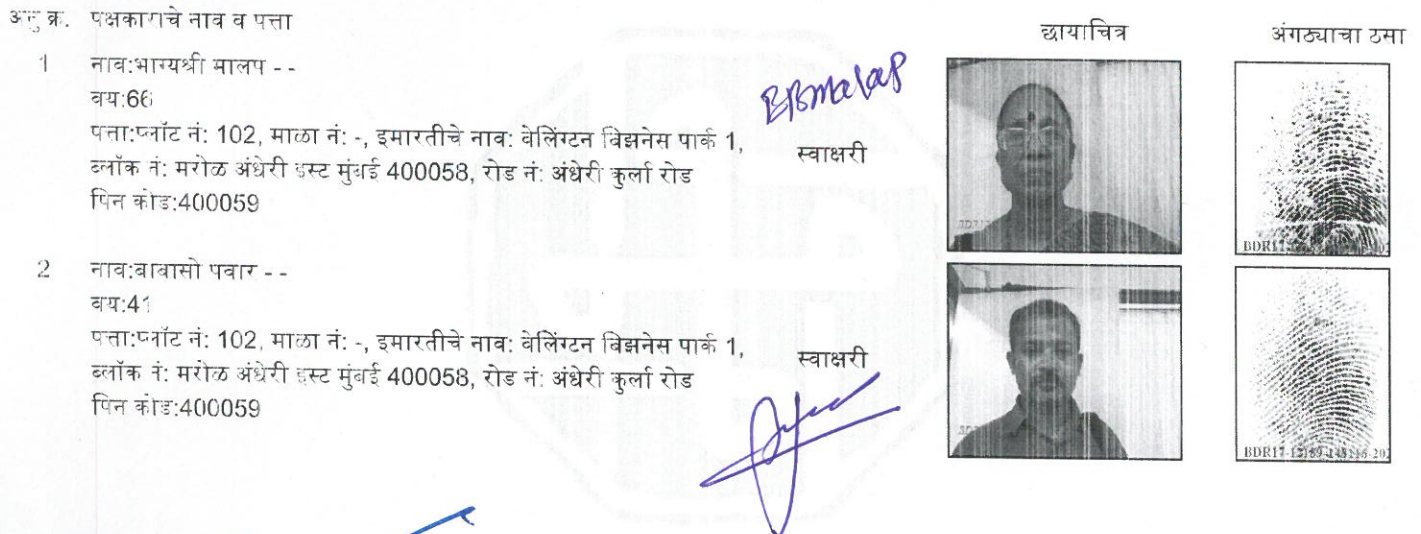 अनु क्र. पक्षकाराचे नाव व पत्ता छायाचित्र अंगठ्याचा ठसा
1 नाव:भाग्यश्री मालप - -
वय:66
पत्ता:प्लॉट नं: 102, माळा नं: -, इमारतीचे नाव: वेलिंग्टन बिझनेस पार्क 1,
ब्लॉक नं: मरोळ अंधेरी इस्ट मुंबई 400058, रोड नं: अंधेरी कुर्ला रोड
पिन कोड:400059
BBmalap
स्वाक्षरी
2 नाव:बाबासो पवार - -
वय:41
पत्ता:प्लॉट नं: 102, माळा नं: -, इमारतीचे नाव: वेलिंग्टन बिझनेस पार्क 1,
ब्लॉक नं: मरोळ अंधेरी इस्ट मुंबई 400058, रोड नं: अंधेरी कुर्ला रोड
पिन कोड:400059
स्वाक्षरी